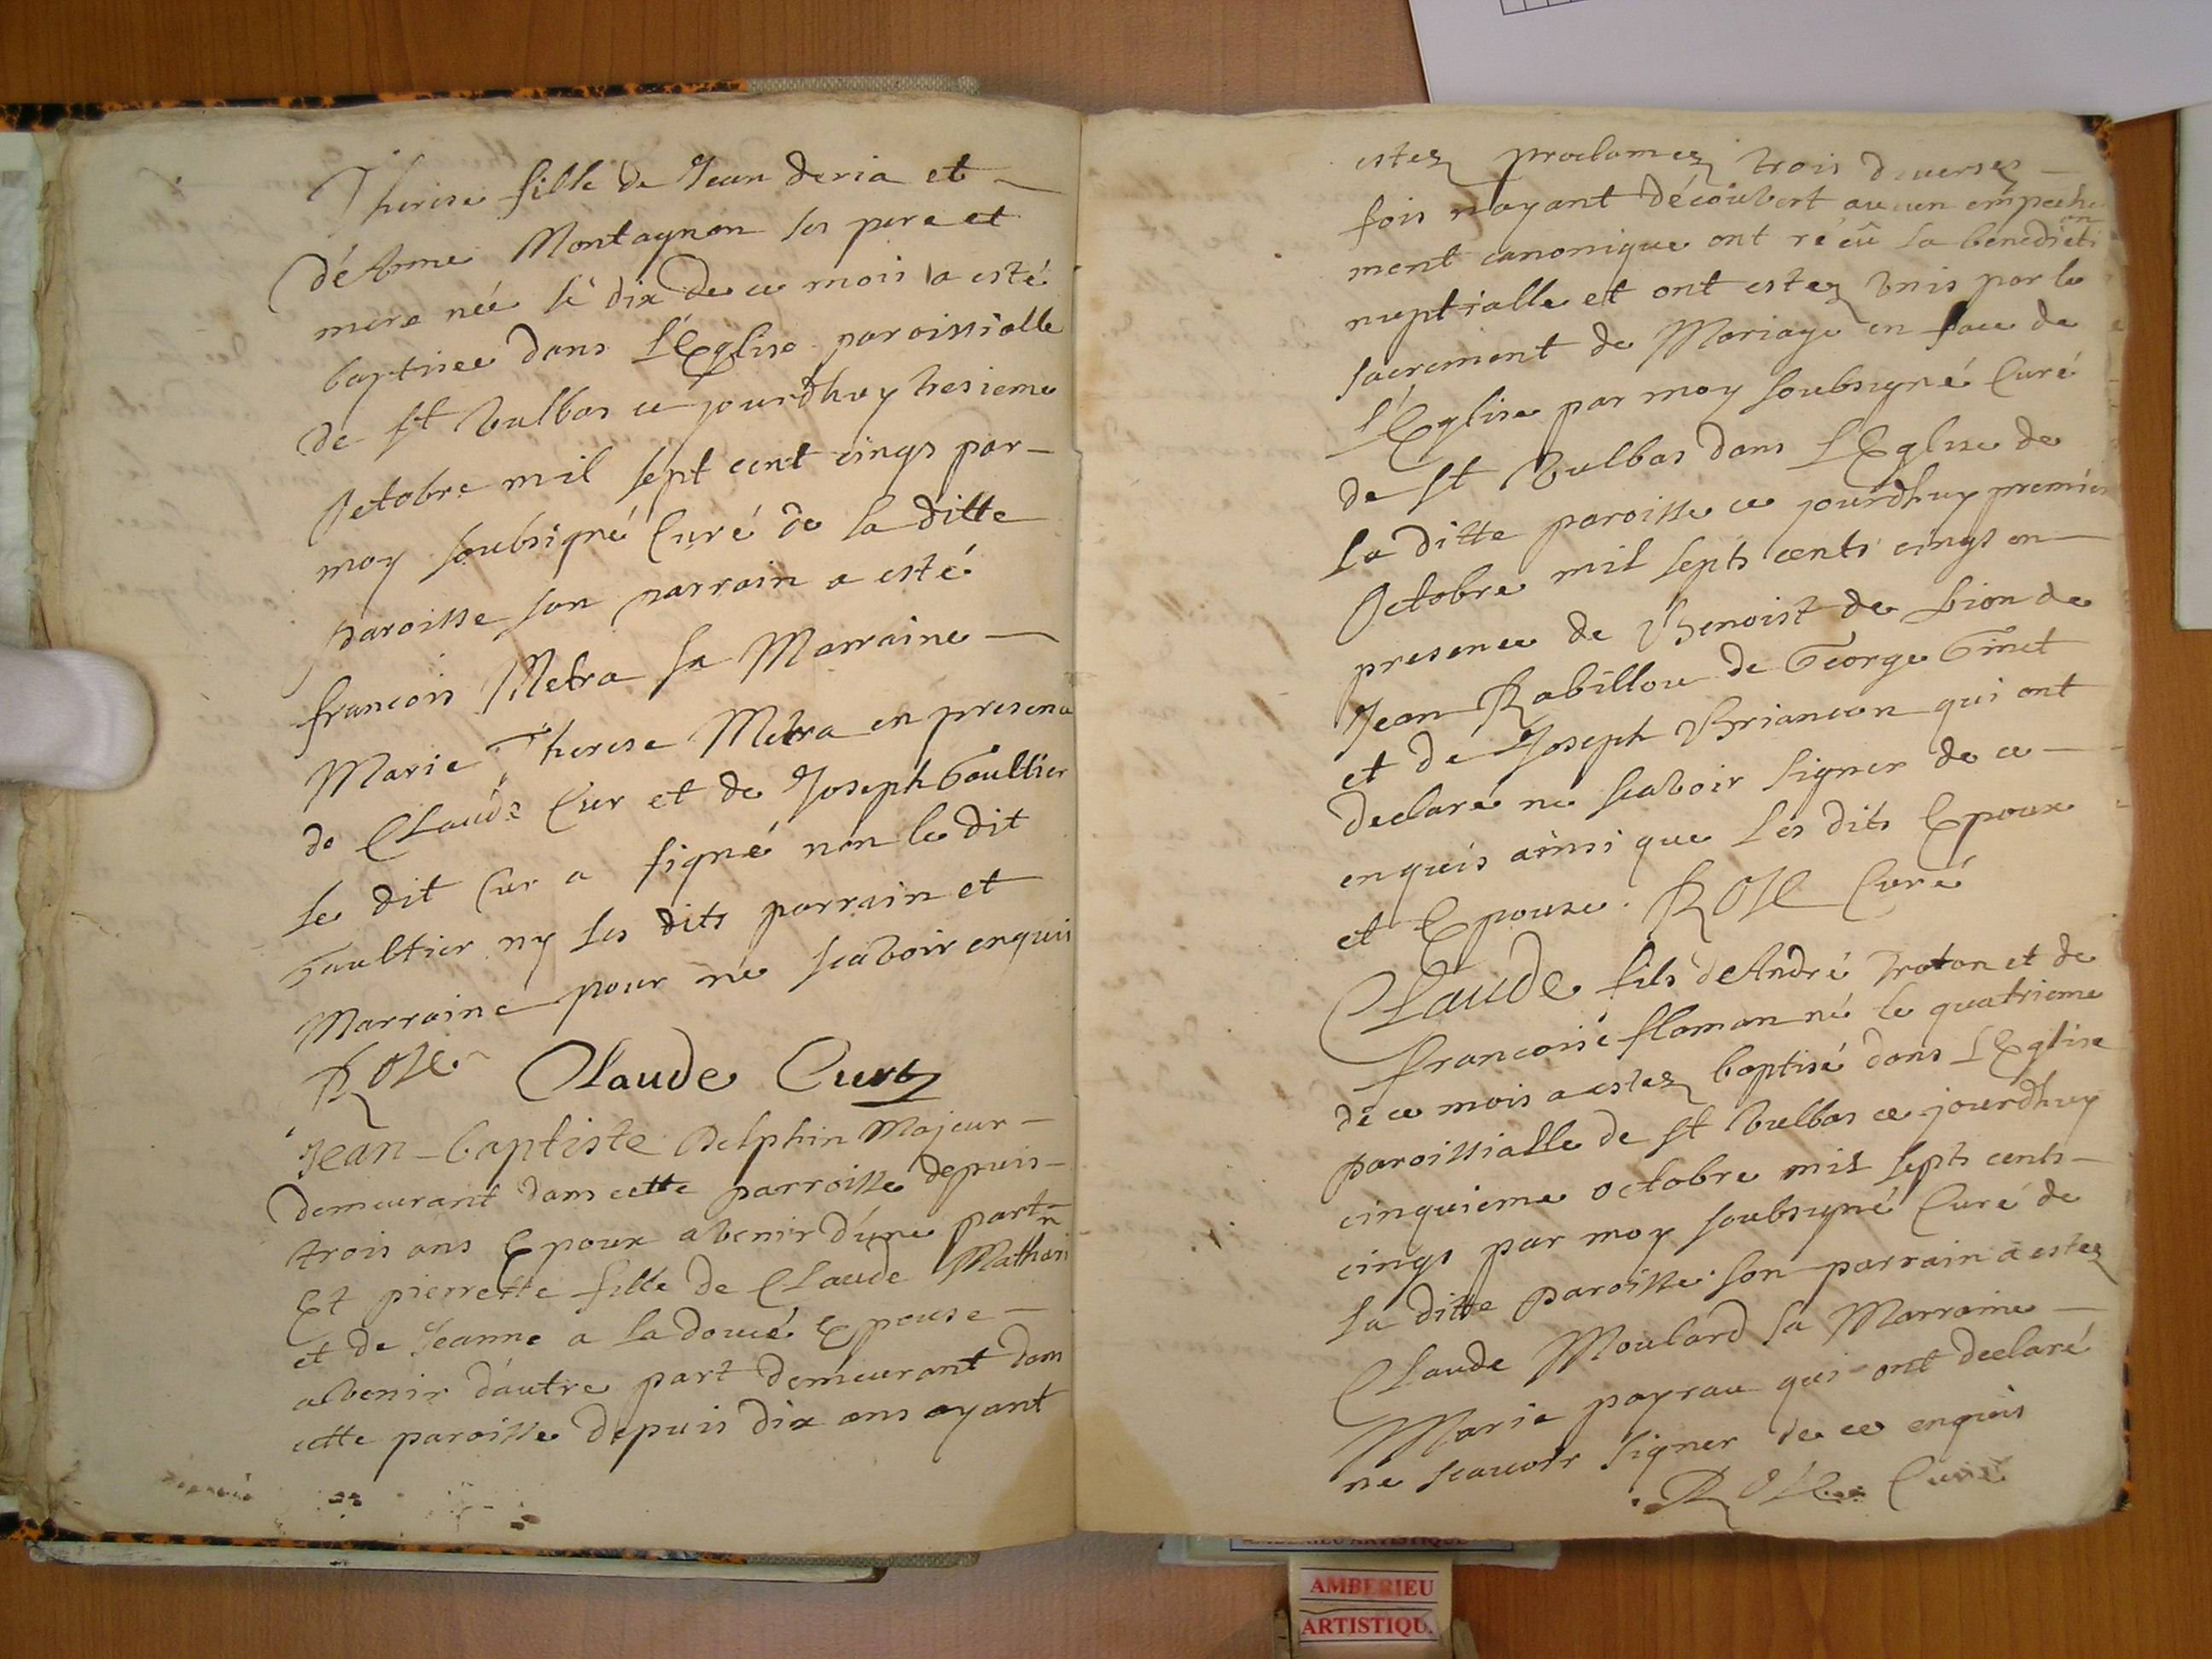 Therese fille de Jean deria et
d'Anne Montagnon ses pere et
mere née le dix de ce mois a esté
baptisee dans L'Eglise paroissialle
de st Vulbas ce jourdhuy tresieme
Octobre mil sept cent cinqs par
moy soubsigné Curé de la ditte
paroisse son parrain a esté
francois Metra sa Marraine
Marie Therese Metra en presence
de Claude Cur et de Joseph Gaultier
le dit Cur a signé non le dit
Gaultier ny les dits parrain et
Marraine pour ne scavoir enquis
Rose Claude Curt
Jean-baptiste Delphin Majeur
demeurant dans cette parroisse depuis
trois ans Epoux avenir d'une part
Et pierrette fille de Claude Mathon
et de Jeanne a ladoucé Epouse
advenir d'autre part demeurant dans
cette paroisse depuis dix ans ayant
estez proclamez trois diverses
fois nayant découvert aucun empeche
ment canonique ont réçû la benediction
nuptialle et ont estez Unis par le
sacrement de Mariage en face de
L'Eglise par moy soubsigné Curé
de st Vulbas dans L'Eglise de
la ditte paroisse ce jourdhuy premier
Octobre mil septs cents cinqs en
presence de Benoist de Lion de
Jean Rabillou de George Ginet
et de Joseph Briancon qui ont
declaré ne scavoir signer de ce
enquis ainsi que Les dits Epoux
et Epouse. Rose Curé
Claude fils d'André Troton et de
francoise flaman né le quatrieme
de ce mois a estez baptisé dans L'Eglise
paroissialle de st Vulbas ce jourdhuy
cinquieme octobre mil septs cents
cinqs par moy soubsigné Curé de
la ditte paroisse son parrain a estez
Claude Moulard sa Marraine
Marie payrau qui ont declaré
ne scavoir signer de ce enquis
Rose Curé
AMBERIEU ARTISTIQUE
AMBERIEU
ARTISTIQU